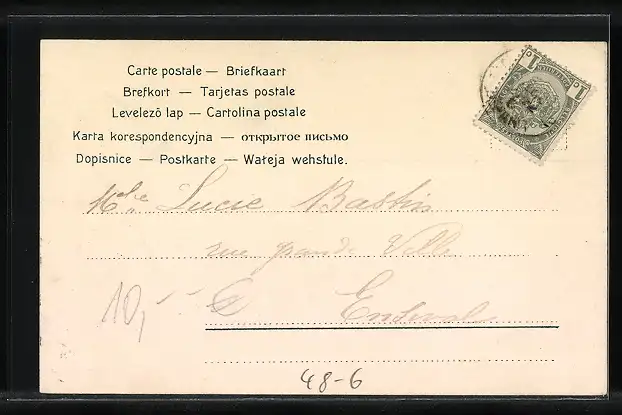 Carte postale — Briefkaart
Brefkort — Tarjetas postale
Levelező lap — Cartolina postale
Karta korespondencyjna — открытое письмо
Dopisnice — Postkarte — Wałeja wehstule.
1 1
Mlle Lucie Bastin
rue grande Ville
Ensival
10,--
48-6